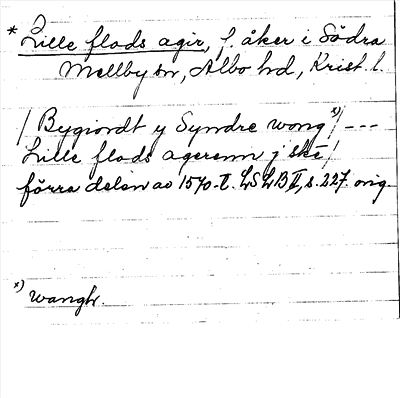 2
* Lille flods agir, f. åker i Södra
Mellby sn, Albo hd, Krist. l.
/ Bygiordt y Syndre wong x) / ---
Lille flods agerenn j skē /
förra delen av 1570-t. LSLB II, s. 227. orig.
x) wangh.